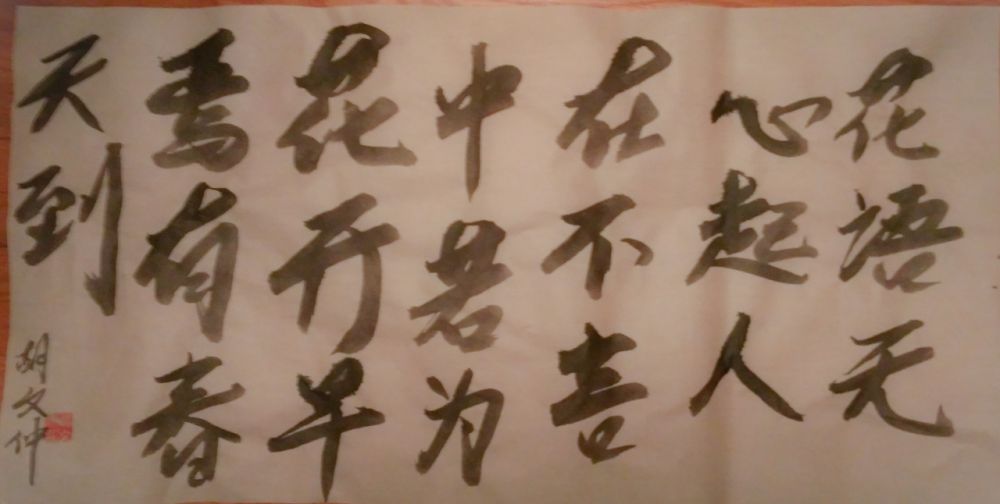 花语无
心起人
在不言
中若为
花开早
焉有春
天到
胡文仲